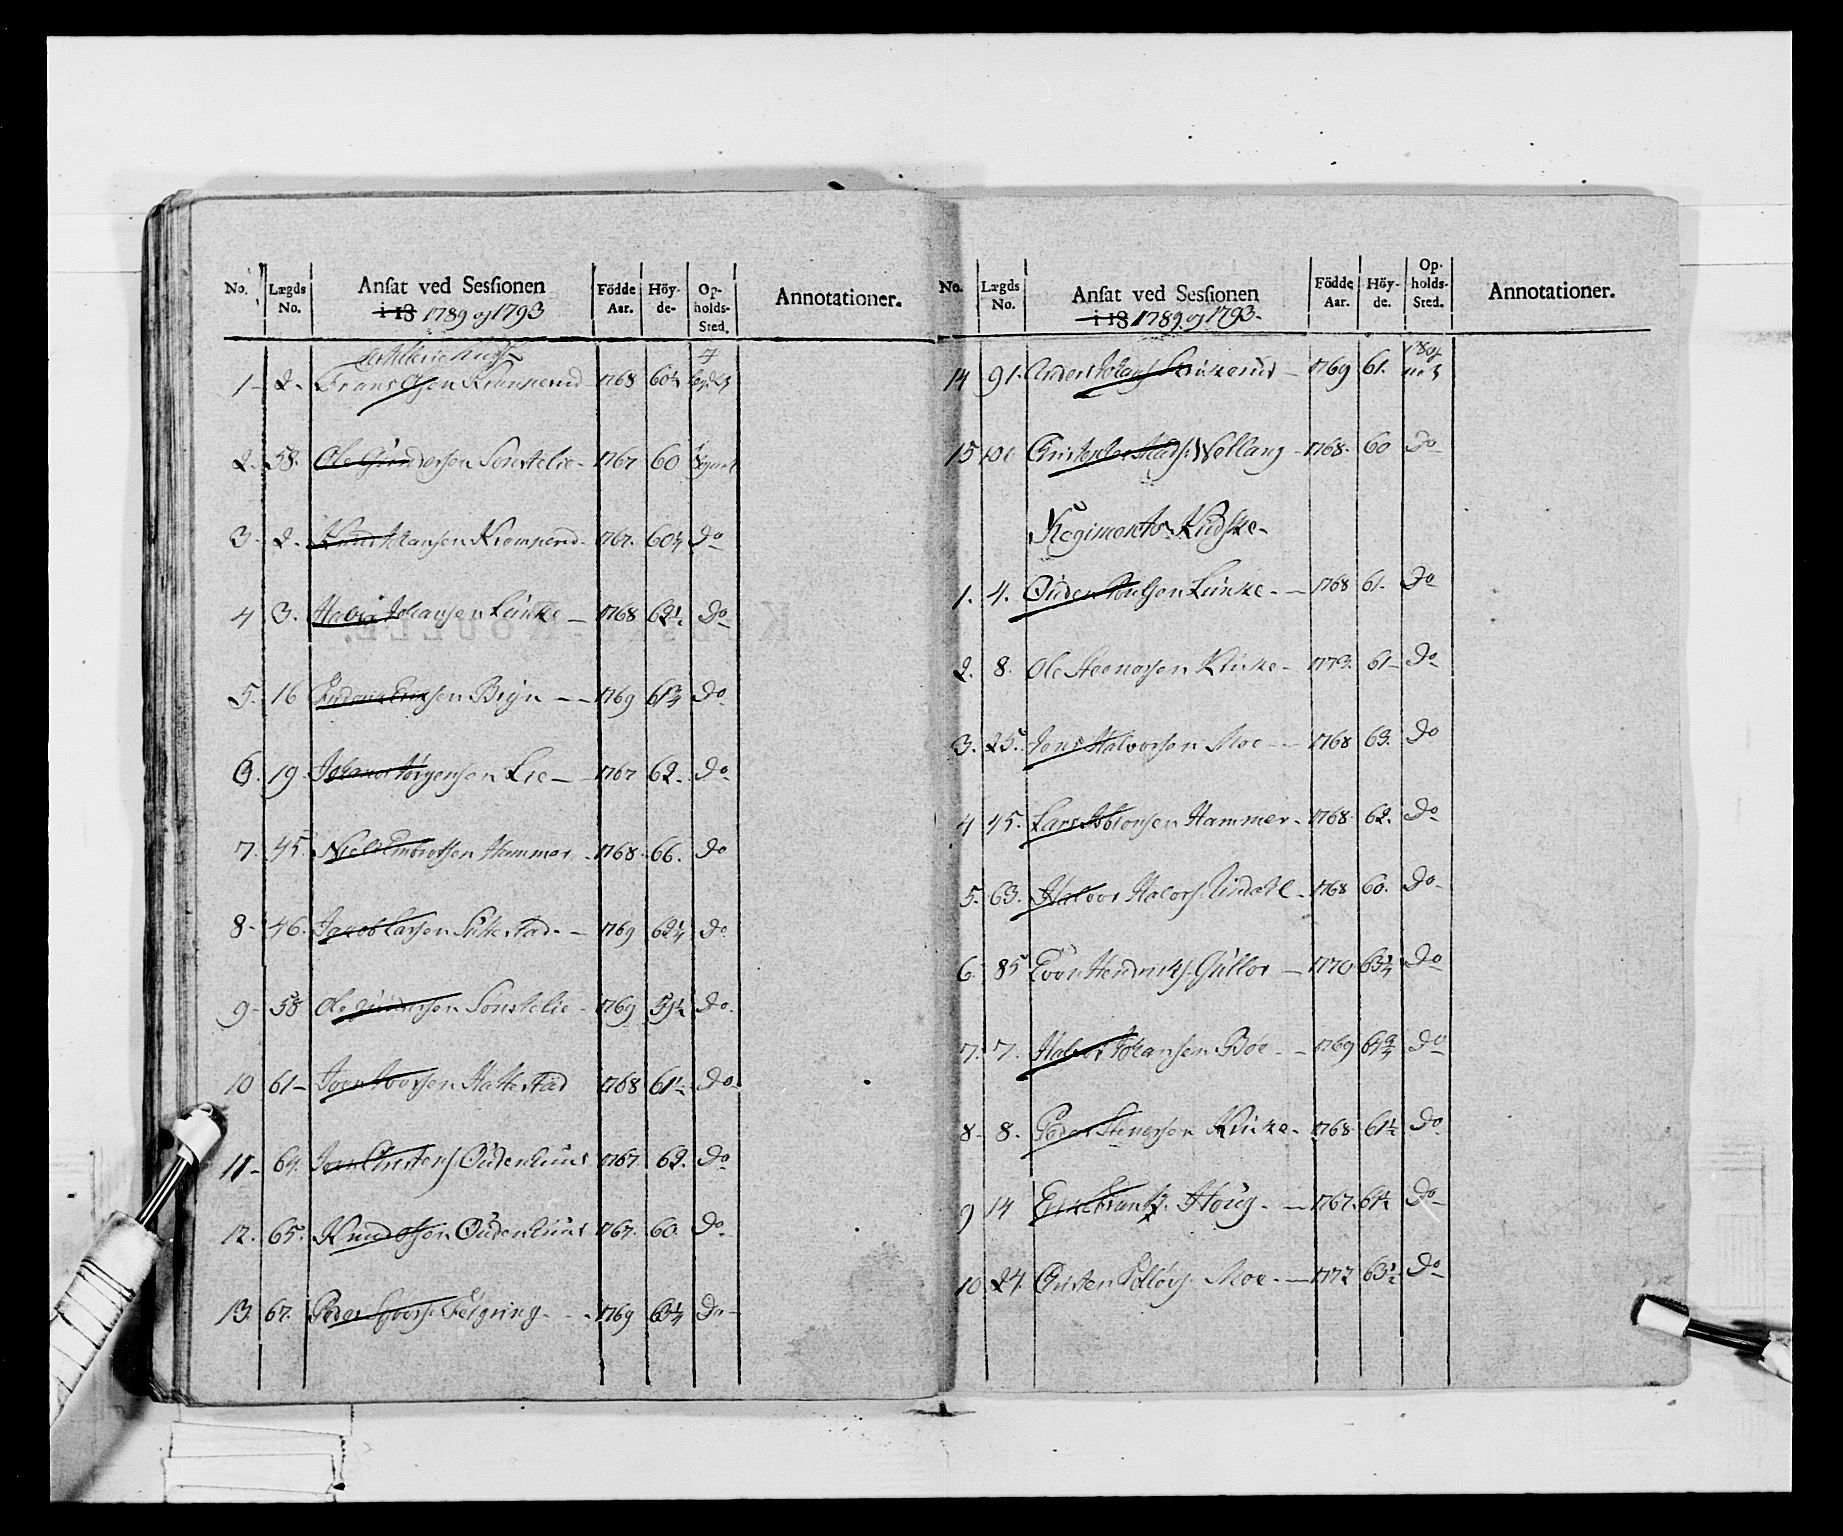 No. Lægds No. Ansat ved Sessionen i 18 1789 og 1793 Födde Aar. Höy-de- Op-holds-Sted. Annotationer.
Artillerie Kudsk
1- 2- Frans Olsen Kramperud 1768 60½ 4
2. 58. Ole Gundersen Sonstelie- 1767 60
3- 2- Johansen Kramperud- 1767. 60¼ Do
4 3. Halvor Johansen Lunke — 1768 62½ Do
5. 16 Erichsen Bign — 1769 61¾ Do
6. 19. Johannes Jörgensen Lie — 1767 62. Do
7. 45. Niels Embretsen Hammer - 1768 66. Do
8- 46. Jacob Larsen Sukestad - 1769 62¼ Do
9- 58 Ole Gundersen Sonstelie - 1769 59½ Do.
10 61- Iver Iversen Hallestad 1768 61½ Do-
11- 64. Christens. Oudenhuus 1767 62. Do
12. 65. Knud Olsen Oudenhuus 1767. 60. Do
13. 67. Peder Feigring. - 1769 63¼ Do-
No. Lægds No. Ansat ved Sessionen i 18 1789 og 1793- Födde Aar. Höy-de. Op-holds-Sted. Annotationer.
14 91. Anders Johans. - 1769 61.
15 100 Christopher Mads. Wollang - 1768- 60 Do
Regiments Kudske-
1. 4. Ouden Poulsen Lunke - 1768 61. Do
2. 8. Ole Steenersen Kluke - 1773. 61- Do
3. 25. Jens Halvorsen Moe - 1768 63. Do
4 45. Lars Hammer- 1768. 62. Do
5. 63. Halvor Halvors. - 1768 60. Do-
6. 85 Iver Hendricks. Gullor - 1770 63¼ Do
7. 7. Halvor Johansen Böe - 1769 Do
8- 8. Peder Stenersen Kluke- 1768 61½ Do
9 14 Erik Frantz. Houg - 1767. 61½ Do-
10. 24. Christen Moe - 1772 63½ Do